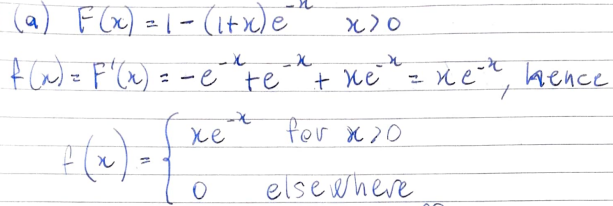 (a) F(x) = 1 - (1+x)e^{-x} x>0
f(x) = F'(x) = -e^{-x} + e^{-x} + xe^{-x} = xe^{-x}, hence
f(x) = { xe^{-x} for x>0
0 elsewhere